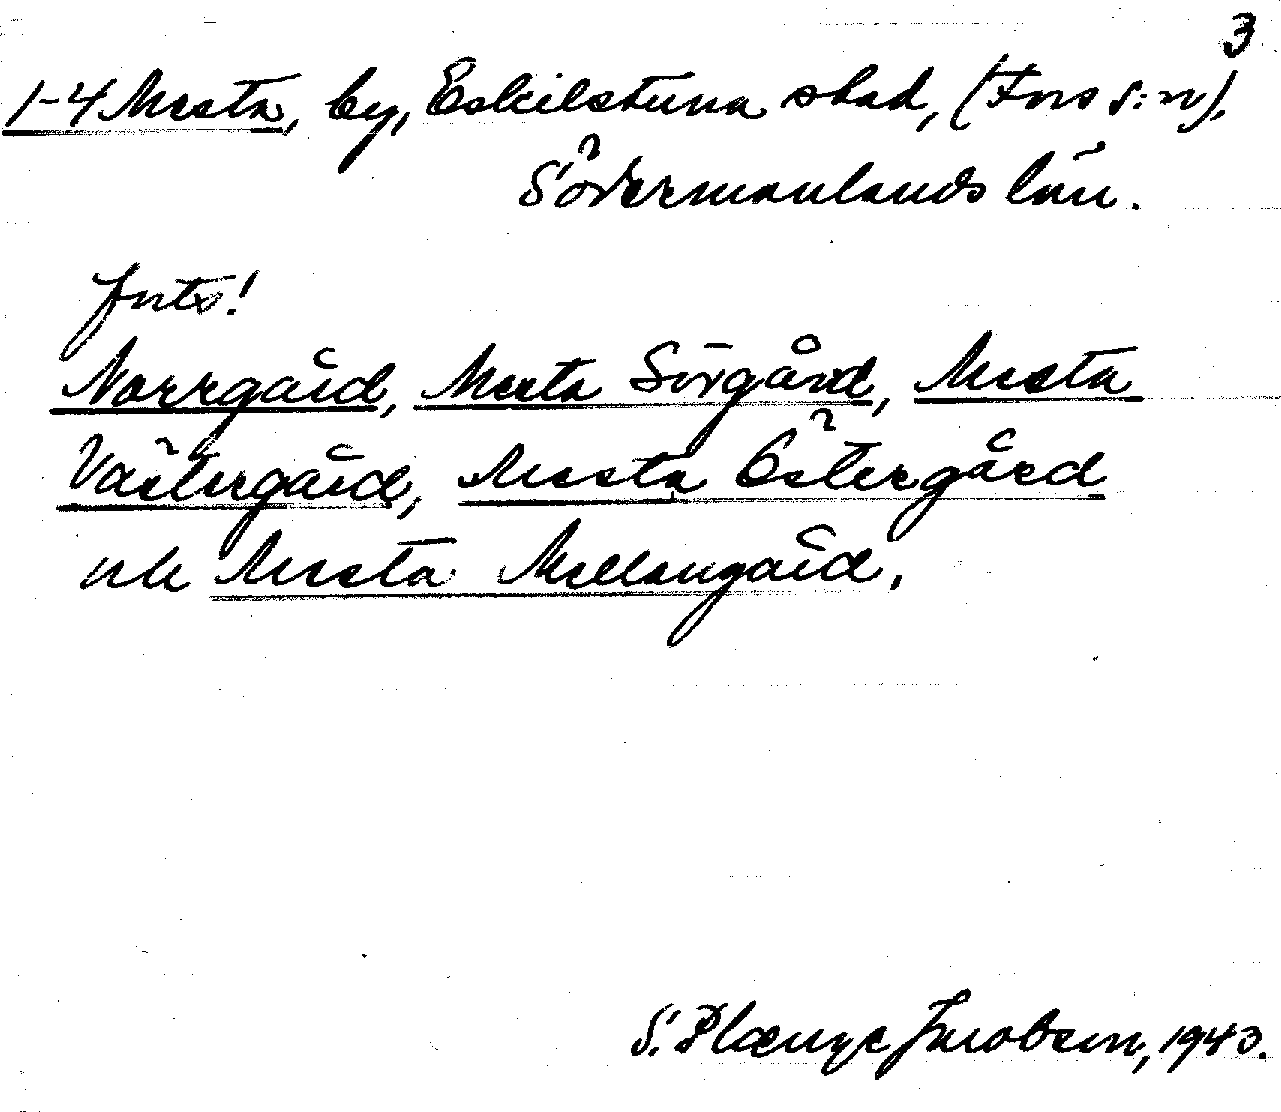 3
1-4 Mesta, by, Eskilstuna stad, (Fors s:n),
Södermanlands län.
forts!
Norrgård, Mesta Sörgård, Mesta
Västergård, Mesta Östergård
och Mesta Mellangård.
S. Plænge Jacobson, 1943.